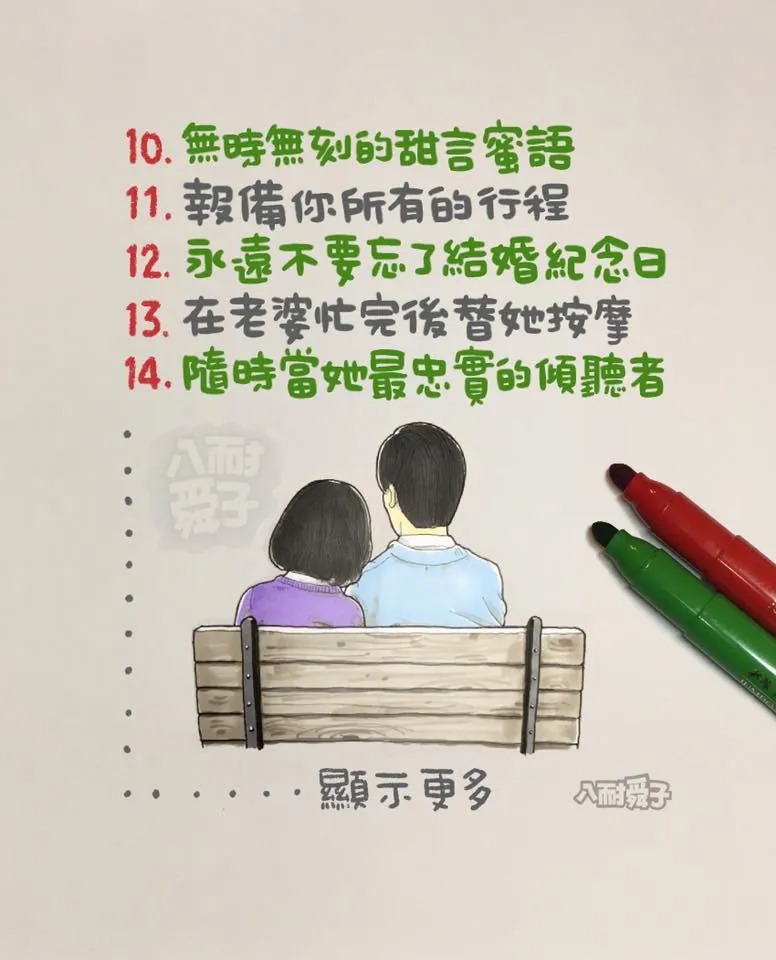 10. 無時無刻的甜言蜜語
11. 報備你所有的行程
12. 永遠不要忘了結婚紀念日
13. 在老婆忙完後替她按摩
14. 隨時當她最忠實的傾聽者
八耐舜子
......顯示更多
八耐舜子